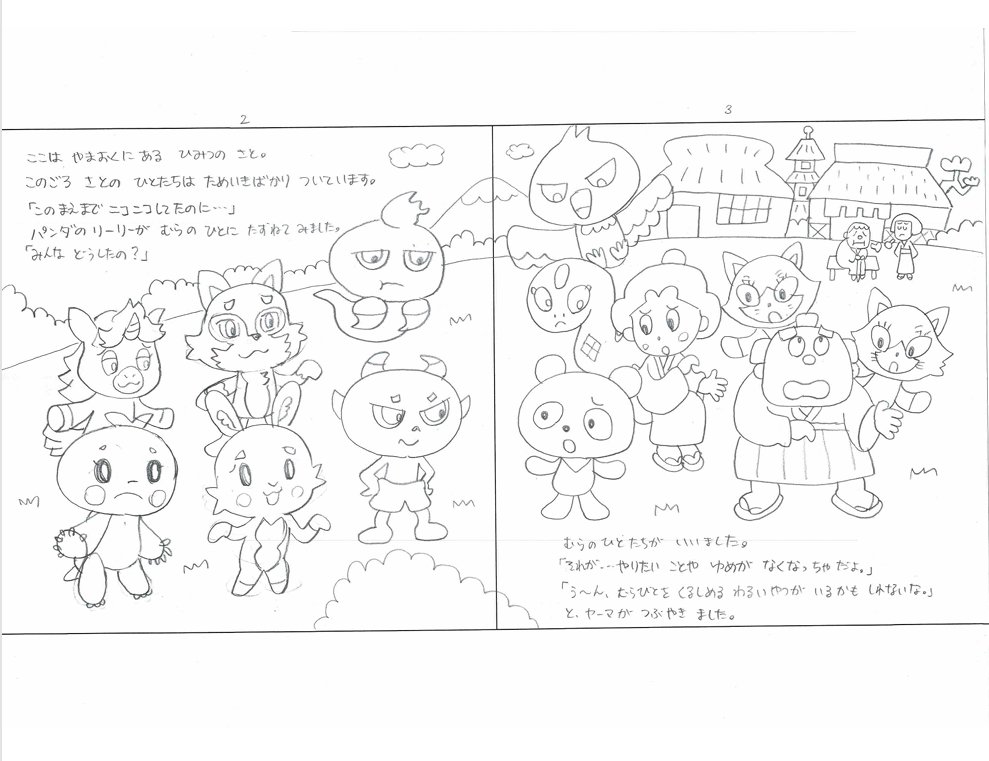 2
ここは やまおくに ある ひみつの さと。
このごろ さとの ひとたちは ためいきばかり ついています。
「このまえまで ニコニコしてたのに…」
パンダのリーリーが むらのひとに たずねて みました。
「みんな どうしたの？」
3
むらのひとたちが いいました。
「それが…やりたい ことや ゆめが なくなっちゃだよ。」
「う〜ん、むらびとを くるしめる わるいやつが いるかも しれないな。」
と、ヤーマが つぶやき ました。